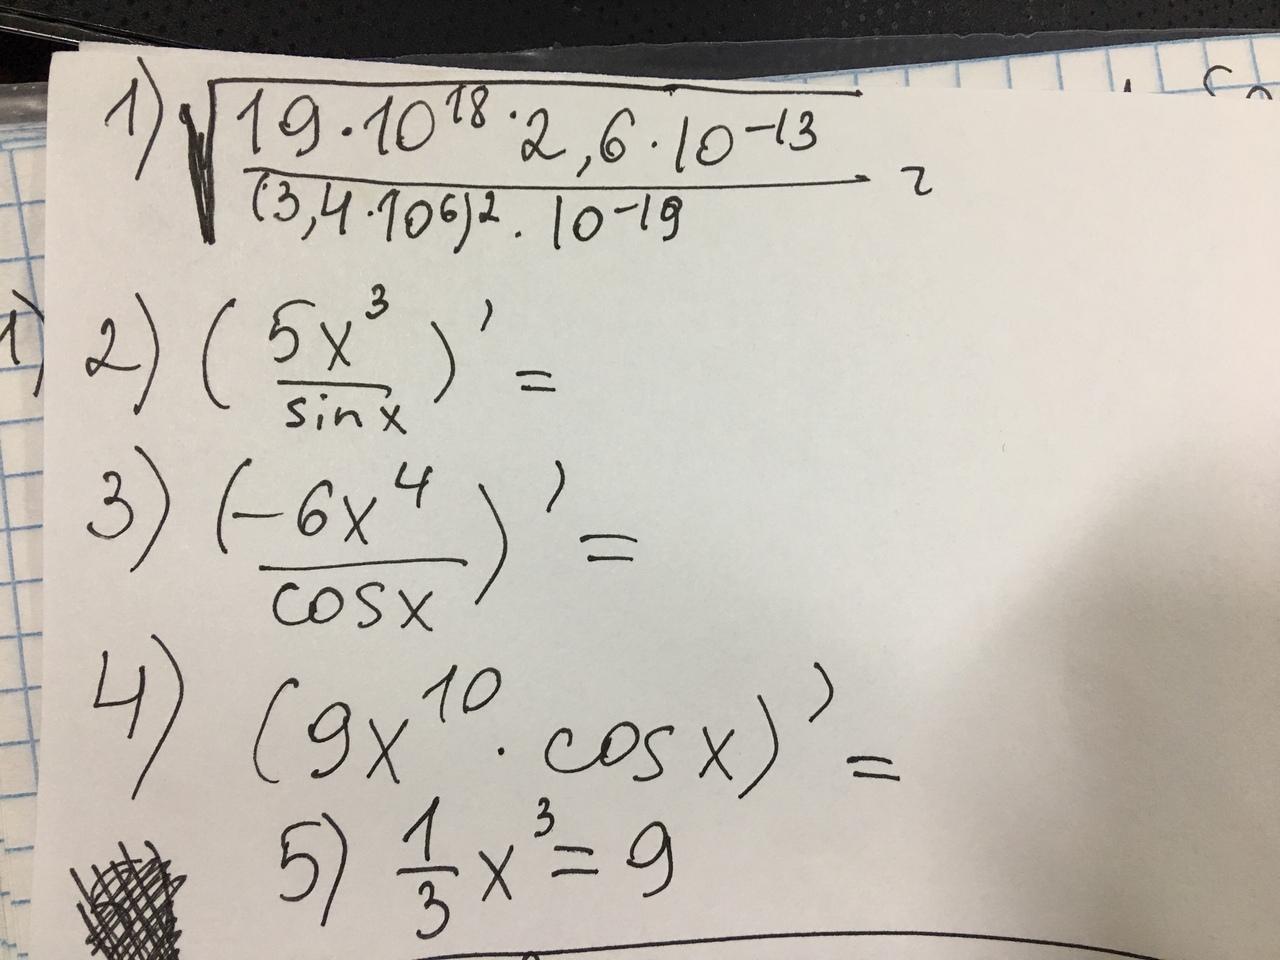 1) √19·10^18·2,6·10^-13 =
(3,4·10^6)^2·10^-19
2) (5x^3)' =
sin x
3) (-6x^4)' =
cosx
4) (9x^10 · cosx)' =
5) 1/3 x^3 = 9
1)